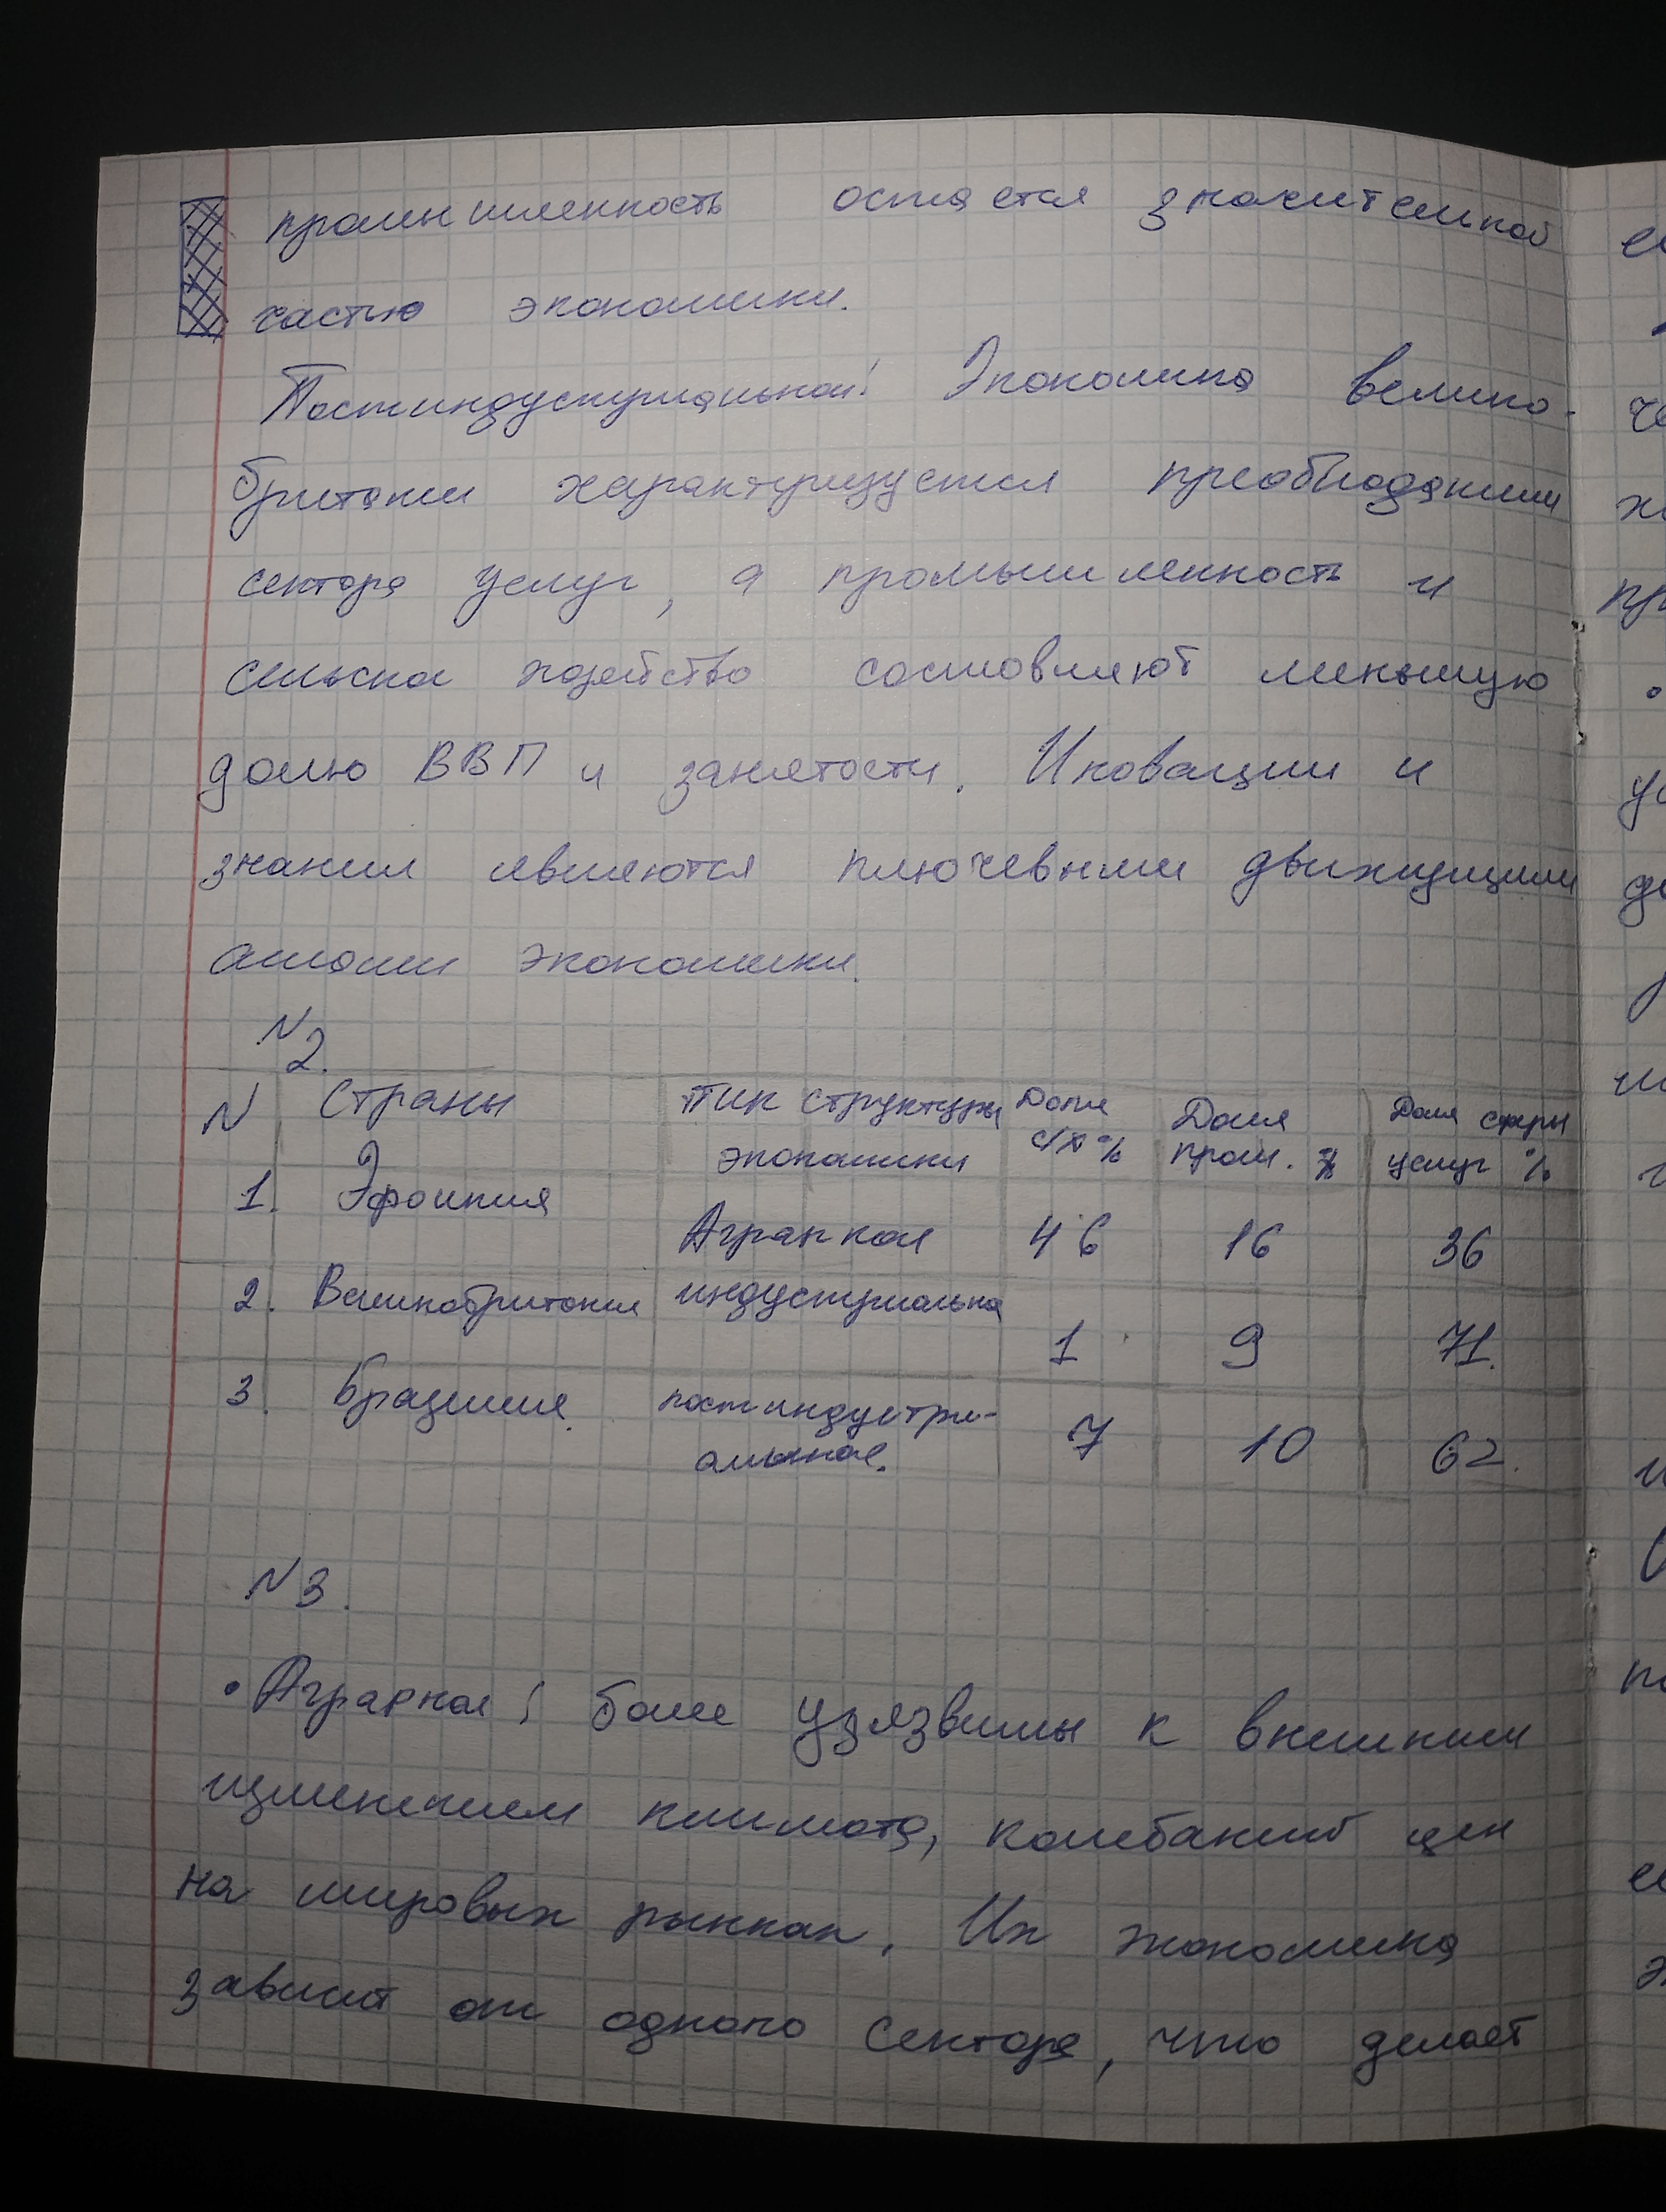 промышленность остается значительной
частью экономики.
Постиндустриальная: Экономика велико-
британии характеризуется преобладанием
сектора услуг, а промышленность и
сельское хозяйство составляют меньшую
долю ВВП и занятости. Иновации и
знания являются ключевыми движущими
силами экономики.
N2.
N Страны Тип структуры экономики Доля с/х % Доля пром. % Доля сферы услуг %
1. Эфиопия Аграрная 46 16 36
2. Великобритания индустриальна 1 9 71.
3. Бразилия. постиндустри-
альная. 7 10 62.
N3.
• Аграрная: более уязвимы к внешним
изменением климата, колебаний цен
на мировых рынках. Их экономика
зависит от одного сектора, что делает